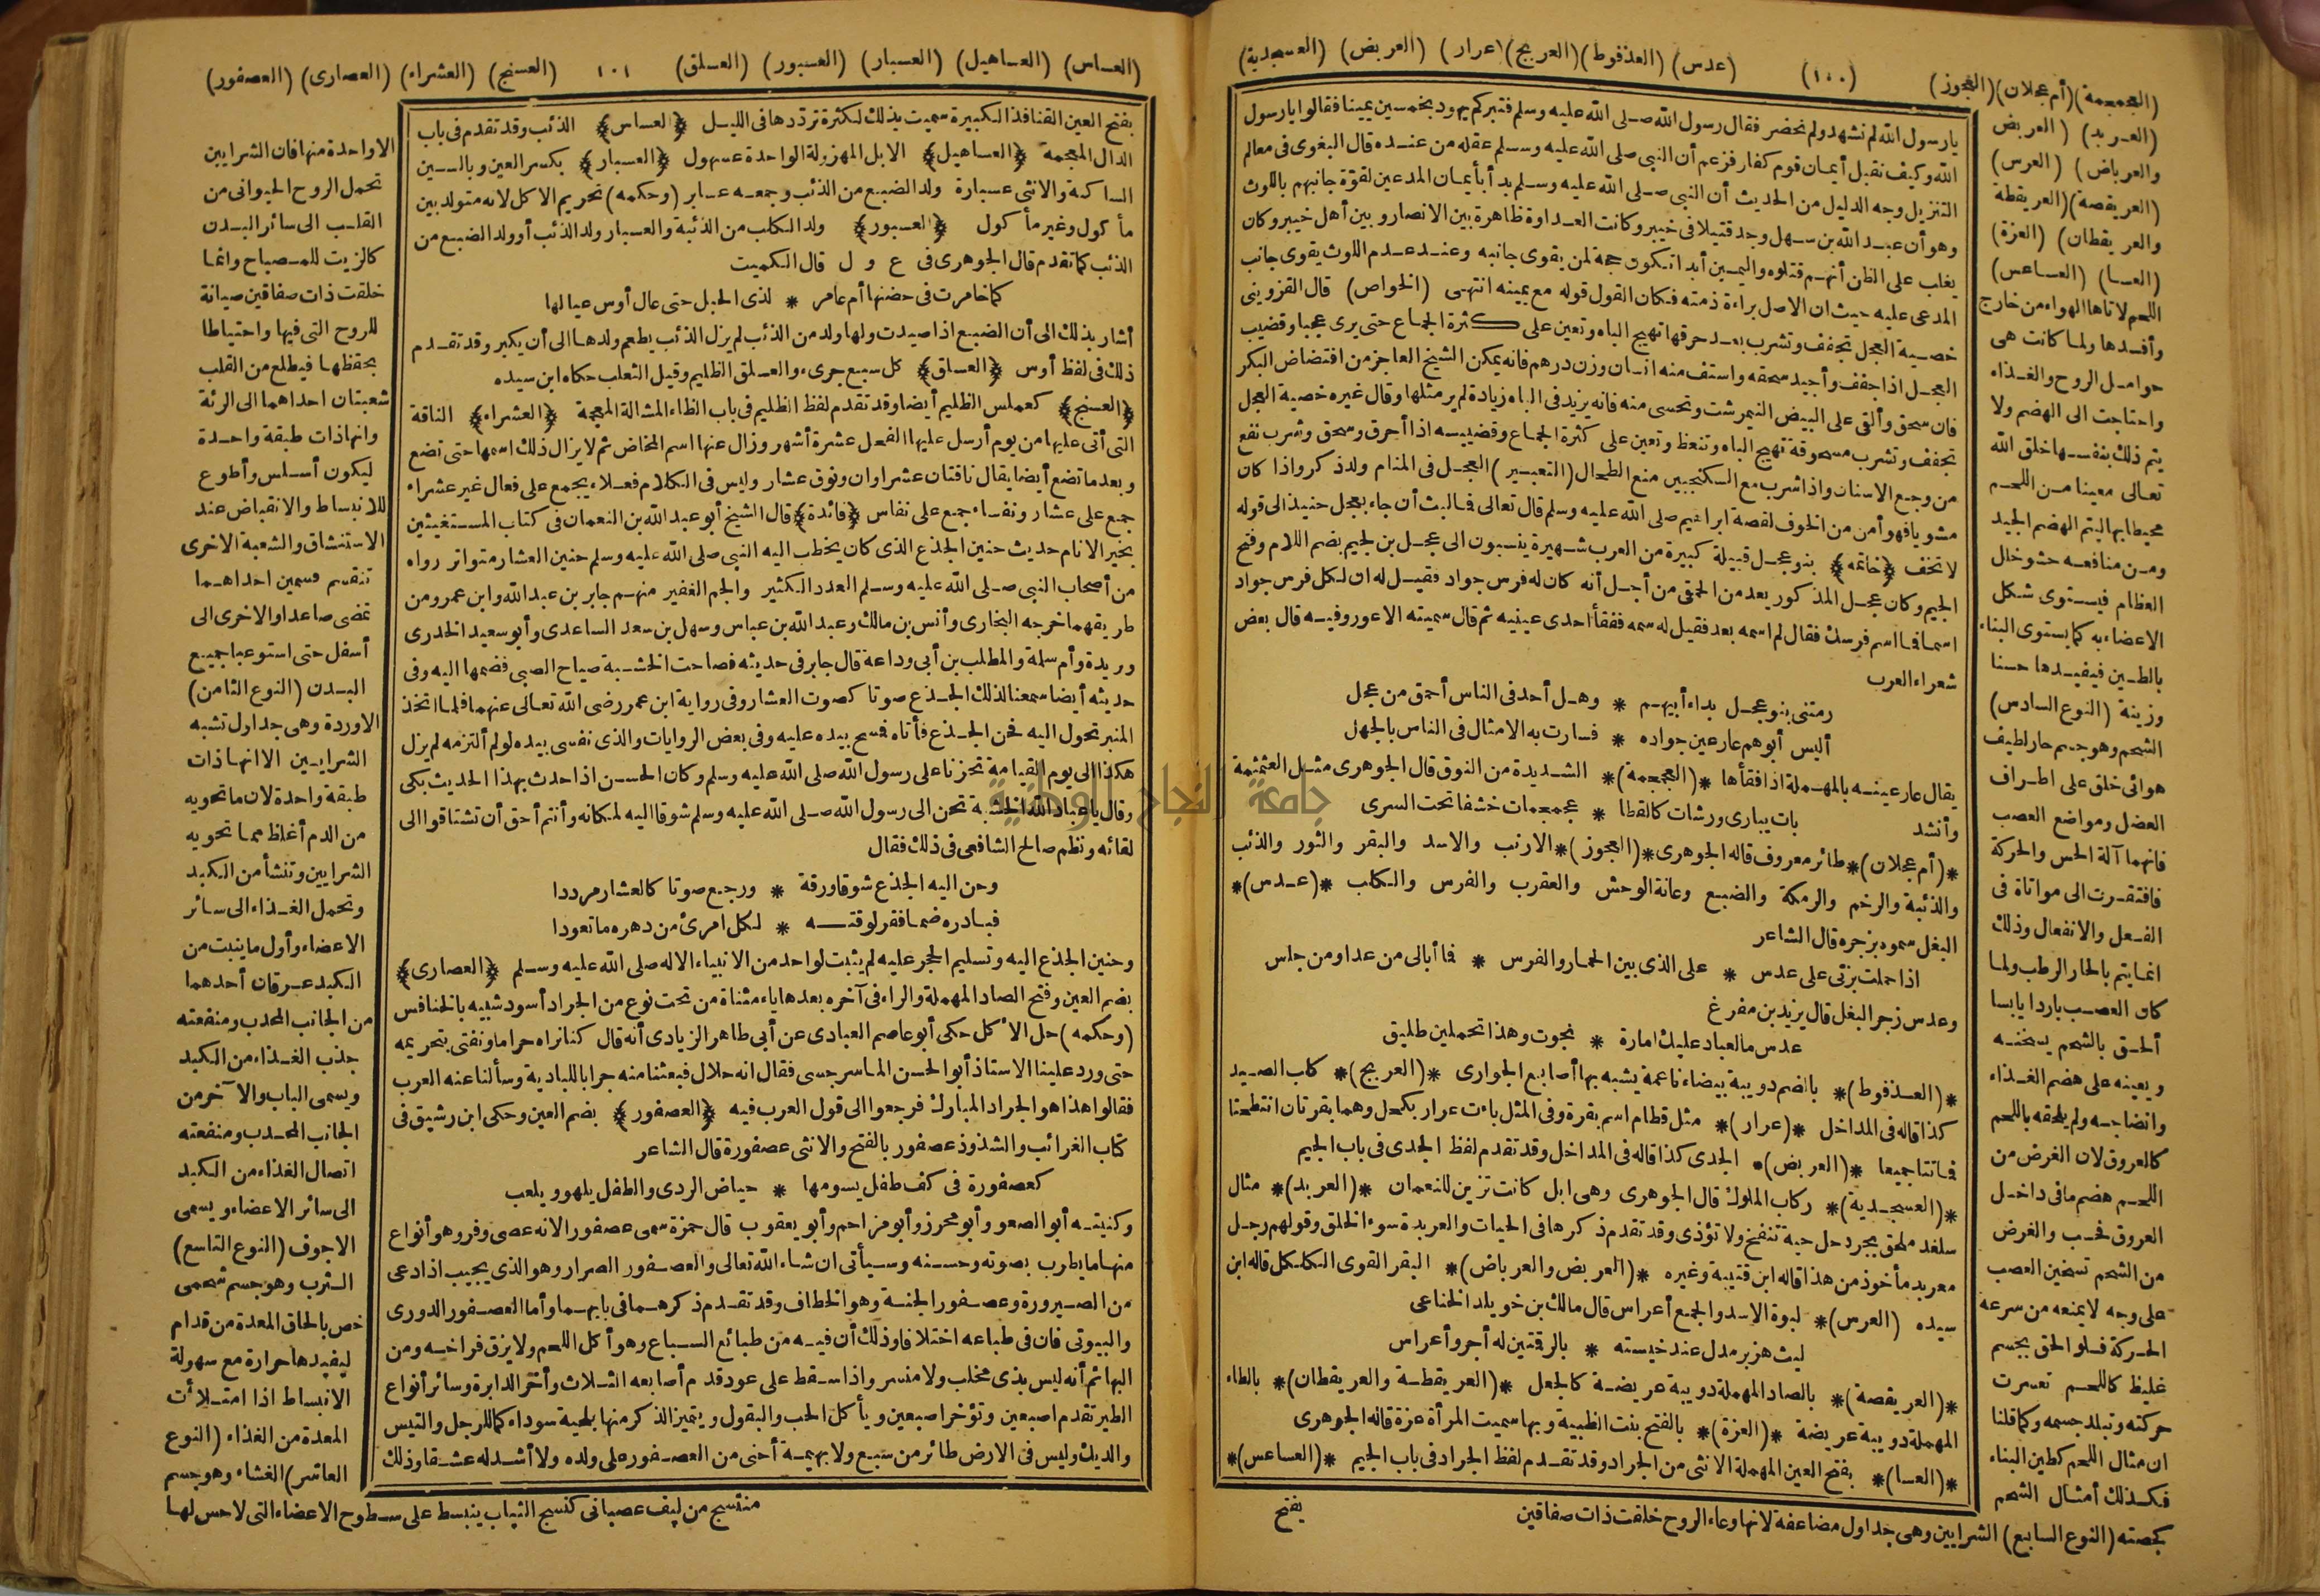 (العجمعمة)(أم عجلان)(العجوز) (١٠٠) (عدس) (العذفوط)(العريج)(عرار) (العربض) (العسجدية)
يارسول الله لم نشهد ولم نحضر فقال رسول الله صلى الله عليه وسلم فتبركم يهود بخمسين يمينا فقالوا يارسول
الله وكيف نقبل أيمان قوم كفار فزعم أن النبي صلى الله عليه وسلم عقله من عنده قال البغوى فى معالم
التنزيل وجه الدليل من الحديث أن النبي صلى الله عليه وسلم بدأ بأيمان المدعين لقوة جانبهم باللوث
وهو أن عبد الله بن سهل وجد قتيلا فى خيبر وكانت العداوة ظاهرة بين الانصار وبين أهل خيبر وكان
يغلب على الظن أنهم قتلوه واليمين أبدا تكون حجة لمن يقوى جانبه وعند عدم اللوث يقوى جانب
المدعى عليه حيث ان الاصل براءة ذمته فكان القول قوله مع يمينه انتهى (الخواص) قال القزوينى
خصية العجل تجفف وتشرب بعد حرقها تهيج الباه وتعين على كثرة الجماع حتى يرى عجبا وقضيب
العجل اذا جفف وأجيد سحقه واستف منه انسان وزن درهم فانه يمكن الشيخ العاجز من افتضاض البكر
فان سحق وألقى على البيض النيمرشت وتحسى منه فانه يزيد فى الباه زيادة لم ير مثلها وقال غيره خصية العجل
تجفف وتشرب مسحوقة تهيج الباه وتنعظ وتعين على كثرة الجماع وقضيبه اذا أحرق وسحق وشرب نفع
من وجع الاسنان واذا شرب مع السكنجبين منع الطحال (التعبير) العجل فى المنام ولد ذكر واذا كان
مشويا فهو أمن من الخوف لقصة ابراهيم صلى الله عليه وسلم قال تعالى فما لبث أن جاء بعجل حنيذ الى قوله
لا تخف ﴿خاتمه﴾ بنو عجل قبيلة كبيرة من العرب شهيرة ينسبون الى عجل بن لجيم بضم اللام وفتح
الجيم وكان عجل المذكور يعد من الحمقى من أجل أنه كان له فرس جواد فقيل له ان لكل فرس جواد
اسما فما اسم فرسك فقال لم اسمه بعد فقيل له سمه ففقأ احدى عينيه ثم قال سميته الاعور وفيه قال بعض
شعراء العرب
رمتنى بنو عجل بداء أبيهم * وهل أحد فى الناس أحمق من عجل
أليس أبوهم عار عين جواده * فسارت به الامثال فى الناس بالجهل
يقال عار عينه بالمهملة اذا فقأها *(العجمعمة)* الشديدة من النوق قال الجوهرى مثل العثمثمة
وأنشد بات يبارى ورشات كالقطا * عجمعمات خشفا تحت السرى
*(أم عجلان)* طائر معروف قاله الجوهرى *(العجوز)* الارنب والاسد والبقر والثور والذئب
والذئبة والرخم والرمكة والضبع وعانة الوحش والعقرب والفرس والكلب *(عدس)*
البغل سموه بزجره قال الشاعر
اذا حملت بزتى على عدس * على الذى بين الحمار والفرس * فما أبالى من عدا ومن جلس
وعدس زجر البغل قال يزيد بن مفرغ
عدس ما لعباد عليك امارة * نجوت وهذا تحملين طليق
*(العذفوط)* بالضم دويبة بيضاء ناعمة يشبه بها أصابع الجوارى *(العريج)* كلب الصيد
كذا قاله فى المداخل *(عرار)* مثل قطام اسم بقرة وفى المثل باءت عرار بكحل وهما بقرتان انتطحتا
فماتتا جميعا *(العربض)* الجدى كذا قاله فى المداخل وقد تقدم لفظ الجدى فى باب الجيم
*(العسجدية)* ركاب الملوك قال الجوهرى وهى ابل كانت تزين للنعمان *(العربد)* مثال
سلغد ملحق بجردحل حية تنفخ ولا تؤذى وقد تقدم ذكرها فى الحيات والعربدة سوء الخلق وقولهم رجل
معربد مأخوذ من هذا قاله ابن قتيبة وغيره *(العربض والعرباض)* البقر القوى الكلكل قاله ابن
سيده (العرس)* لبوة الاسد والجمع أعراس قال مالك بن خويلد الخناعى
ليث هزبر مدل عند خيسته * بالرقتين له أجر وأعراس
*(العريقصة)* بالصاد المهملة دويبة عريضة كالجعل *(العريقطة والعريقطان)* بالطاء
المهملة دويبة عريضة *(العزة)* بالفتح بنت الظبية وبها سميت المرأة عزة قاله الجوهرى
*(العسا)* بفتح العين المهملة الانثى من الجراد وقد تقدم لفظ الجراد فى باب الجيم *(العساعس)*
بفتح
(العربد) (العربض
والعرباض) (العرس)
(العريقصة)(العريقطة
والعريقطان) (العزة)
(العسا) (العساعس)
اللحم لاتاها الهواء من خارج
وأفسدها ولما كانت هى
حوامل الروح والغذاء
واحتاجت الى الهضم ولا
يتم ذلك بنفسها خلق الله
تعالى معينا من اللحم
محيطا بها ليتم الهضم الجيد
ومن منافعه حشو خلل
العظام فيستوى شكل
الاعضاء به كما يستوى البناء
بالطين فيفيدها حسنا
وزينة (النوع السادس)
الشحم وهو جسم حار لطيف
هوائى خلق على اطراف
العضل ومواضع العصب
فانهما آلة الحس والحركة
فافتقرت الى مواتاة فى
الفعل والانفعال وذلك
انما يتم بالحار الرطب ولما
كان العصب باردا يابسا
ألحق بالشحم يسخنه
ويعينه على هضم الغذاء
وانضاجه ولم يلحقه باللحم
كالعروق لان الغرض من
اللحم هضم ما فى داخل
العروق فحسب والغرض
من الشحم تسخين العصب
على وجه لا يمنعه من سرعة
الحركة فلو الحق بجسم
غليظ كاللحم تعسرت
حركته وتبلد جسمه وكما قلنا
ان مثال اللحم كطين البناء
فكذلك أمثال الشحم
كجصته (النوع السابع) الشرايين وهى جداول مضاعفة لانها وعاء الروح خلقت ذات صفاقين
(العساس) (العساهيل) (العسبار) (العسبور) (العسلق) ١٠١ (العسنج) (العشراء) (العصارى) (العصفور)
بفتح العين القنافذ الكبيرة سميت بذلك لكثرة ترددها فى الليل ﴿العساس﴾ الذئب وقد تقدم فى باب
الدال المعجمة ﴿العساهيل﴾ الابل المهزولة الواحدة عسهول ﴿العسبار﴾ بكسر العين وبالسين
الساكنة والانثى عسبارة ولد الضبع من الذئب وجمعه عسابر (وحكمه) تحريم الاكل لانه متولد بين
مأكول وغير مأكول ﴿العسبور﴾ ولد الكلب من الذئبة والعسبار ولد الذئب أو ولد الضبع من
الذئب كما تقدم قال الجوهرى فى ع و ل قال الكميت
كما خامرت فى حضنها أم عامر * لذى الحبل حتى عال أوس عيالها
أشار بذلك الى أن الضبع اذا صيدت ولها ولد من الذئب لم يزل الذئب يطعم ولدها الى أن يكبر وقد تقدم
ذلك فى لفظ أوس ﴿العسلق﴾ كل سبع جرىء والعسلق الظليم وقيل الثعلب حكاه ابن سيده
﴿العسنج﴾ كعملس الظليم أيضا وقد تقدم لفظ الظليم فى باب الظاء المشالة المعجمة ﴿العشراء﴾ الناقة
التى أتى عليها من يوم أرسل عليها الفحل عشرة أشهر وزال عنها اسم المخاض ثم لا يزال ذلك اسمها حتى تضع
وبعد ما تضع أيضا يقال ناقتان عشراوان ونوق عشار وليس فى الكلام فعلاء يجمع على فعال غير عشراء
جمع على عشار ونفساء جمع على نفاس ﴿فائدة﴾ قال الشيخ أبو عبد الله بن النعمان فى كتاب المستغيثين
بخير الانام حديث حنين الجذع الذى كان يخطب اليه النبي صلى الله عليه وسلم حنين العشار متواتر رواه
من أصحاب النبي صلى الله عليه وسلم العدد الكثير والجم الغفير منهم جابر بن عبد الله وابن عمر ومن
طريقهما خرجه البخارى وأنس بن مالك وعبد الله بن عباس وسهل بن سعد الساعدى وأبو سعيد الخدرى
وريدة وأم سلمة والمطلب بن أبى وداعة قال جابر فى حديثه فصاحت الخشبة صياح الصبى فضمها اليه وفى
حديثه أيضا سمعنا لذلك الجذع صوتا كصوت العشار وفى رواية ابن عمر رضى الله تعالى عنهما فلما اتخذ
المنبر تحول اليه فحن الجذع فأتاه فمسح بيده عليه وفى بعض الروايات والذى نفسى بيده لو لم ألتزمه لم يزل
هكذا الى يوم القيامة تحزنا على رسول الله صلى الله عليه وسلم وكان الحسن اذا حدث بهذا الحديث بكى
وقال يا عباد الله الخشبة تحن الى رسول الله صلى الله عليه وسلم شوقا اليه لمكانه وأنتم أحق أن تشتاقوا الى
لقائه ونظم صالح الشافعى فى ذلك فقال
وحن اليه الجذع شوقا ورقة * ورجع صوتا كالعشار مرددا
فبادره ضما فقر لوقته * لكل امرئ من دهره ما تعودا
وحنين الجذع اليه وتسليم الحجر عليه لم يثبت لواحد من الانبياء الا له صلى الله عليه وسلم ﴿العصارى﴾
بضم العين وفتح الصاد المهملة والراء فى آخره بعدها ياء مثناة من تحت نوع من الجراد أسود شبيه بالخنافس
(وحكمه) حل الاكل حكى أبو عاصم العبادى عن أبى طاهر الزيادى أنه قال كنا نراه حراما ونفتى بتحريمه
حتى ورد علينا الاستاذ أبو الحسن الماسرجسى فقال انه حلال فبعثنا منه جرابا للبادية وسألنا عنه العرب
فقالوا هذا هو الجراد المبارك فرجعوا الى قول العرب فيه ﴿العصفور﴾ بضم العين وحكى ابن رشيق فى
كتاب الغرائب والشذوذ عصفور بالفتح والانثى عصفورة قال الشاعر
كعصفورة فى كف طفل يسومها * حياض الردى والطفل يلهو ويلعب
وكنيته أبو الصعو وأبو محرز وأبو مزاحم وأبو يعقوب قال حمزة سمى عصفورا لانه عصى وفر وهو أنواع
منها ما يطرب بصوته وحسنه وسيأتى ان شاء الله تعالى والعصفور الصرار وهو الذى يجيب اذا دعى
من الصيرورة وعصفور الجنة وهو الخطاف وقد تقدم ذكرهما فى بابهما وأما العصفور الدورى
والبيوتى فان فى طباعه اختلافا وذلك أن فيه من طبائع السباع وهو أكل اللحم ولا يزق فراخه ومن
البهائم أنه ليس بذى مخلب ولا منسر واذا سقط على عود قدم أصابعه الثلاث وأخر الدابرة وسائر أنواع
الطير تقدم اصبعين وتؤخر اصبعين ويأكل الحب والبقول ويتميز الذكر منها بلحية سوداء كما للرجل والتيس
والديك وليس فى الارض طائر من سبع ولا بهيمة أحنى من العصفور على ولده ولا أشد له عشقا وذلك
الا واحدة منها فان الشرايين
تحمل الروح الحيوانى من
القلب الى سائر البدن
كالزيت للمصباح وانما
خلقت ذات صفاقين صيانة
للروح التى فيها واحتياطا
بحفظها فيطلع من القلب
شعبتان احداهما الى الرئة
وانها ذات طبقة واحدة
ليكون أسلس وأطوع
للانبساط والانقباض عند
الاستنشاق والشعبة الاخرى
تنقسم قسمين احداهما
تمضى صاعدا والاخرى الى
أسفل حتى استوعبا جميع
البدن (النوع الثامن)
الاوردة وهى جداول تشبه
الشرايين الا انها ذات
طبقة واحدة لان ما تحويه
من الدم أغلظ مما تحويه
الشرايين وتنشأ من الكبد
وتحمل الغذاء الى سائر
الاعضاء وأول ما ينبت من
الكبد عرقان أحدهما
من الجانب المحدب ومنفعته
جذب الغذاء من الكبد
ويسمى الباب والآخر من
الجانب المحدب ومنفعته
اتصال الغذاء من الكبد
الى سائر الاعضاء ويسمى
الاجوف (النوع التاسع)
الثرب وهو جسم شحمى
خص بالحاق المعدة من قدام
ليفيدها حرارة مع سهولة
الانبساط اذا امتلأت
المعدة من الغذاء (النوع
العاشر) الغشاء وهو جسم
منتسج من ليف عصبانى كنسج الثياب ينبسط على سطوح الاعضاء التى لا حس لها
جامعة النجاح الوطنية